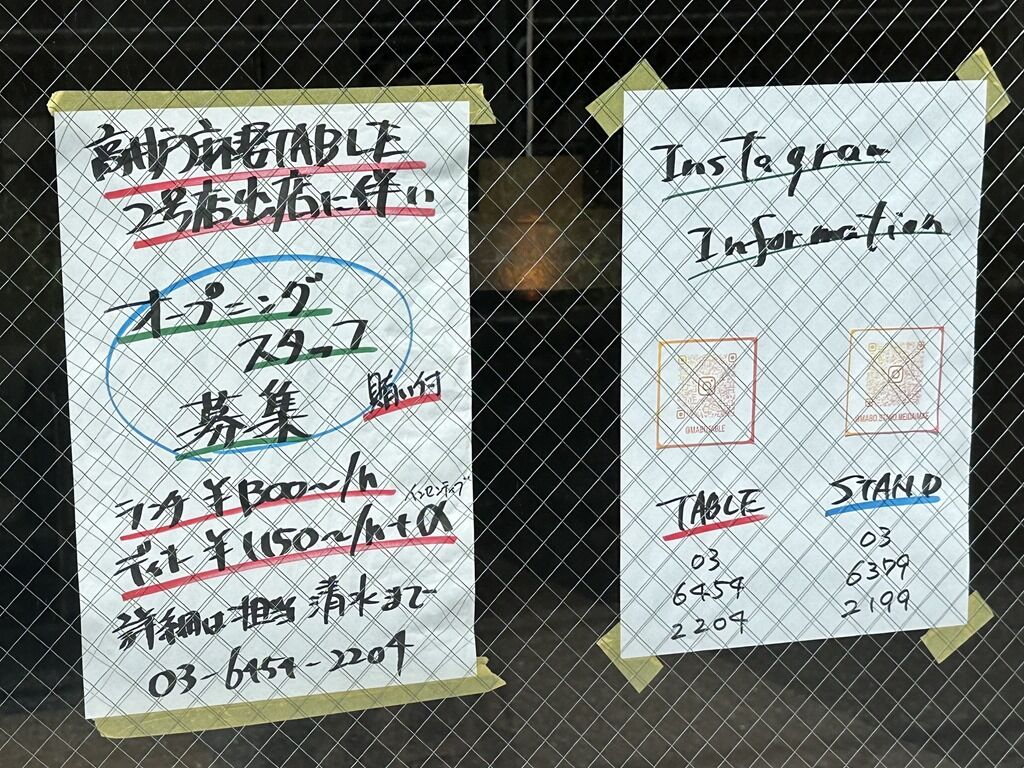 高村麻君TABLE
2号店出店に伴い
オープニング
スタッフ
募集
賄い付
ランチ ¥1300〜/h
インセンティブ
ディナー ¥1150〜/h+α
詳細は担当 清水まで
03-6454-2204
Instagram
Information
@MABO.TABLE
@MABO.STAND.MEIDAIMAE
TABLE
03
6454
2204
STAND
03
6379
2199